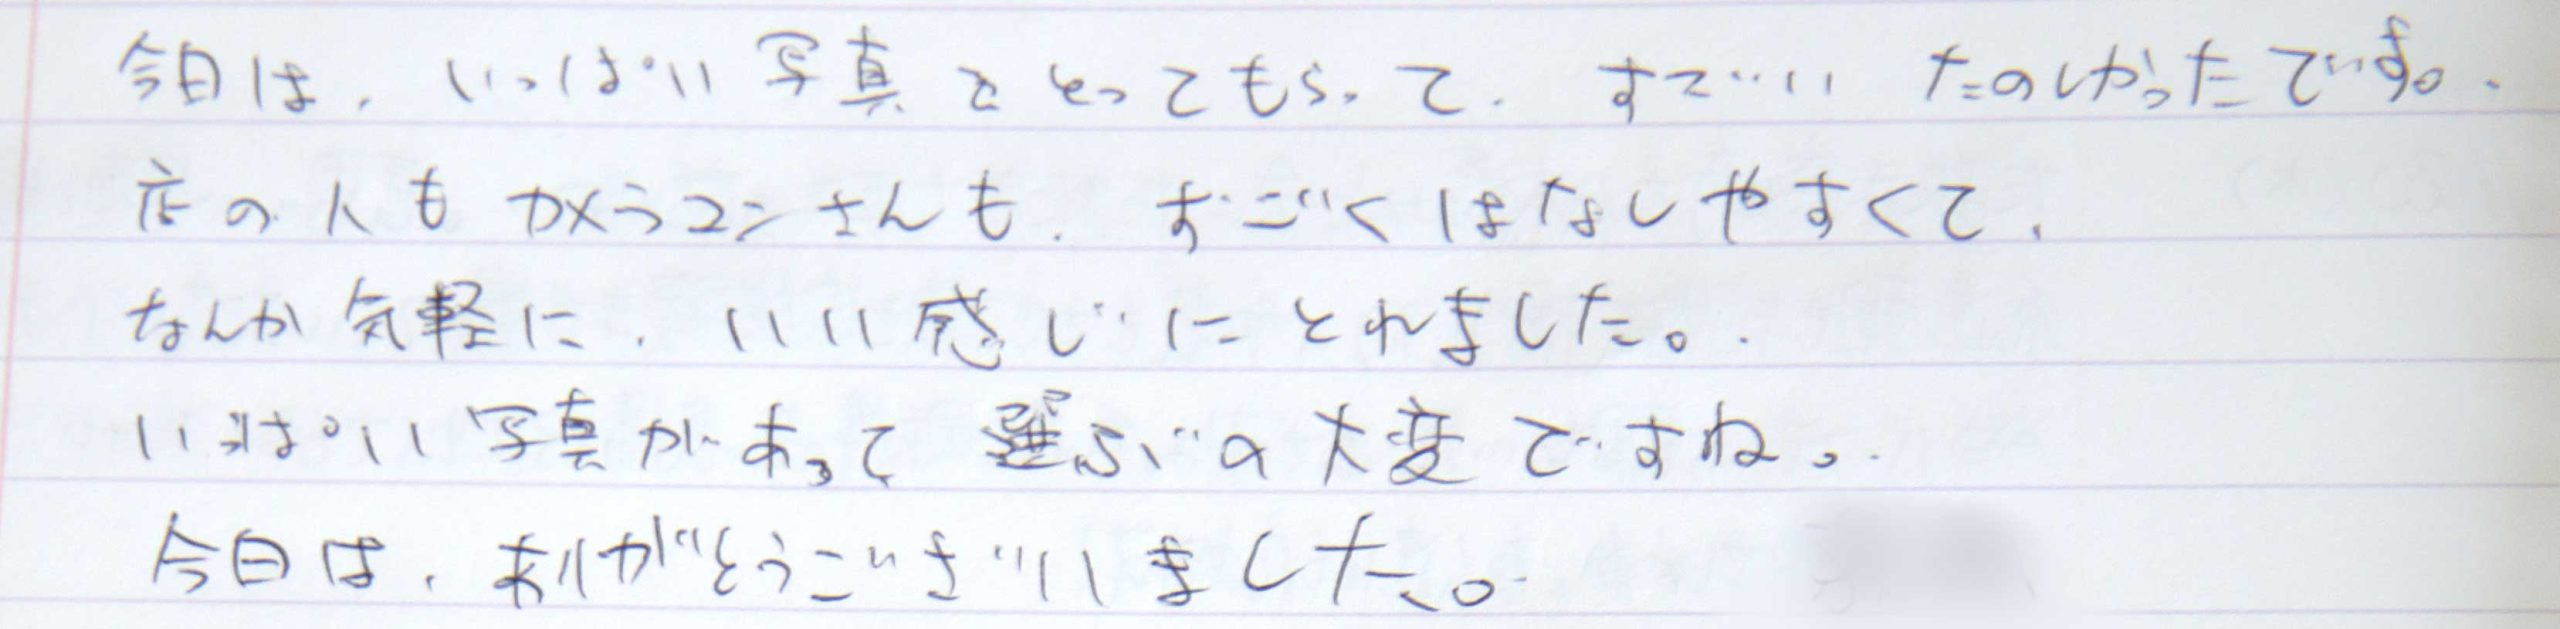 今日は、いっぱい写真をとってもらって、すごいたのしかったです。
店の人もカメラマンさんも、すごくはなしやすくて、
なんか気軽に、いい感じにとれました。
いっぱい写真があって選ぶの大変ですね。
今日は、ありがとうございました。